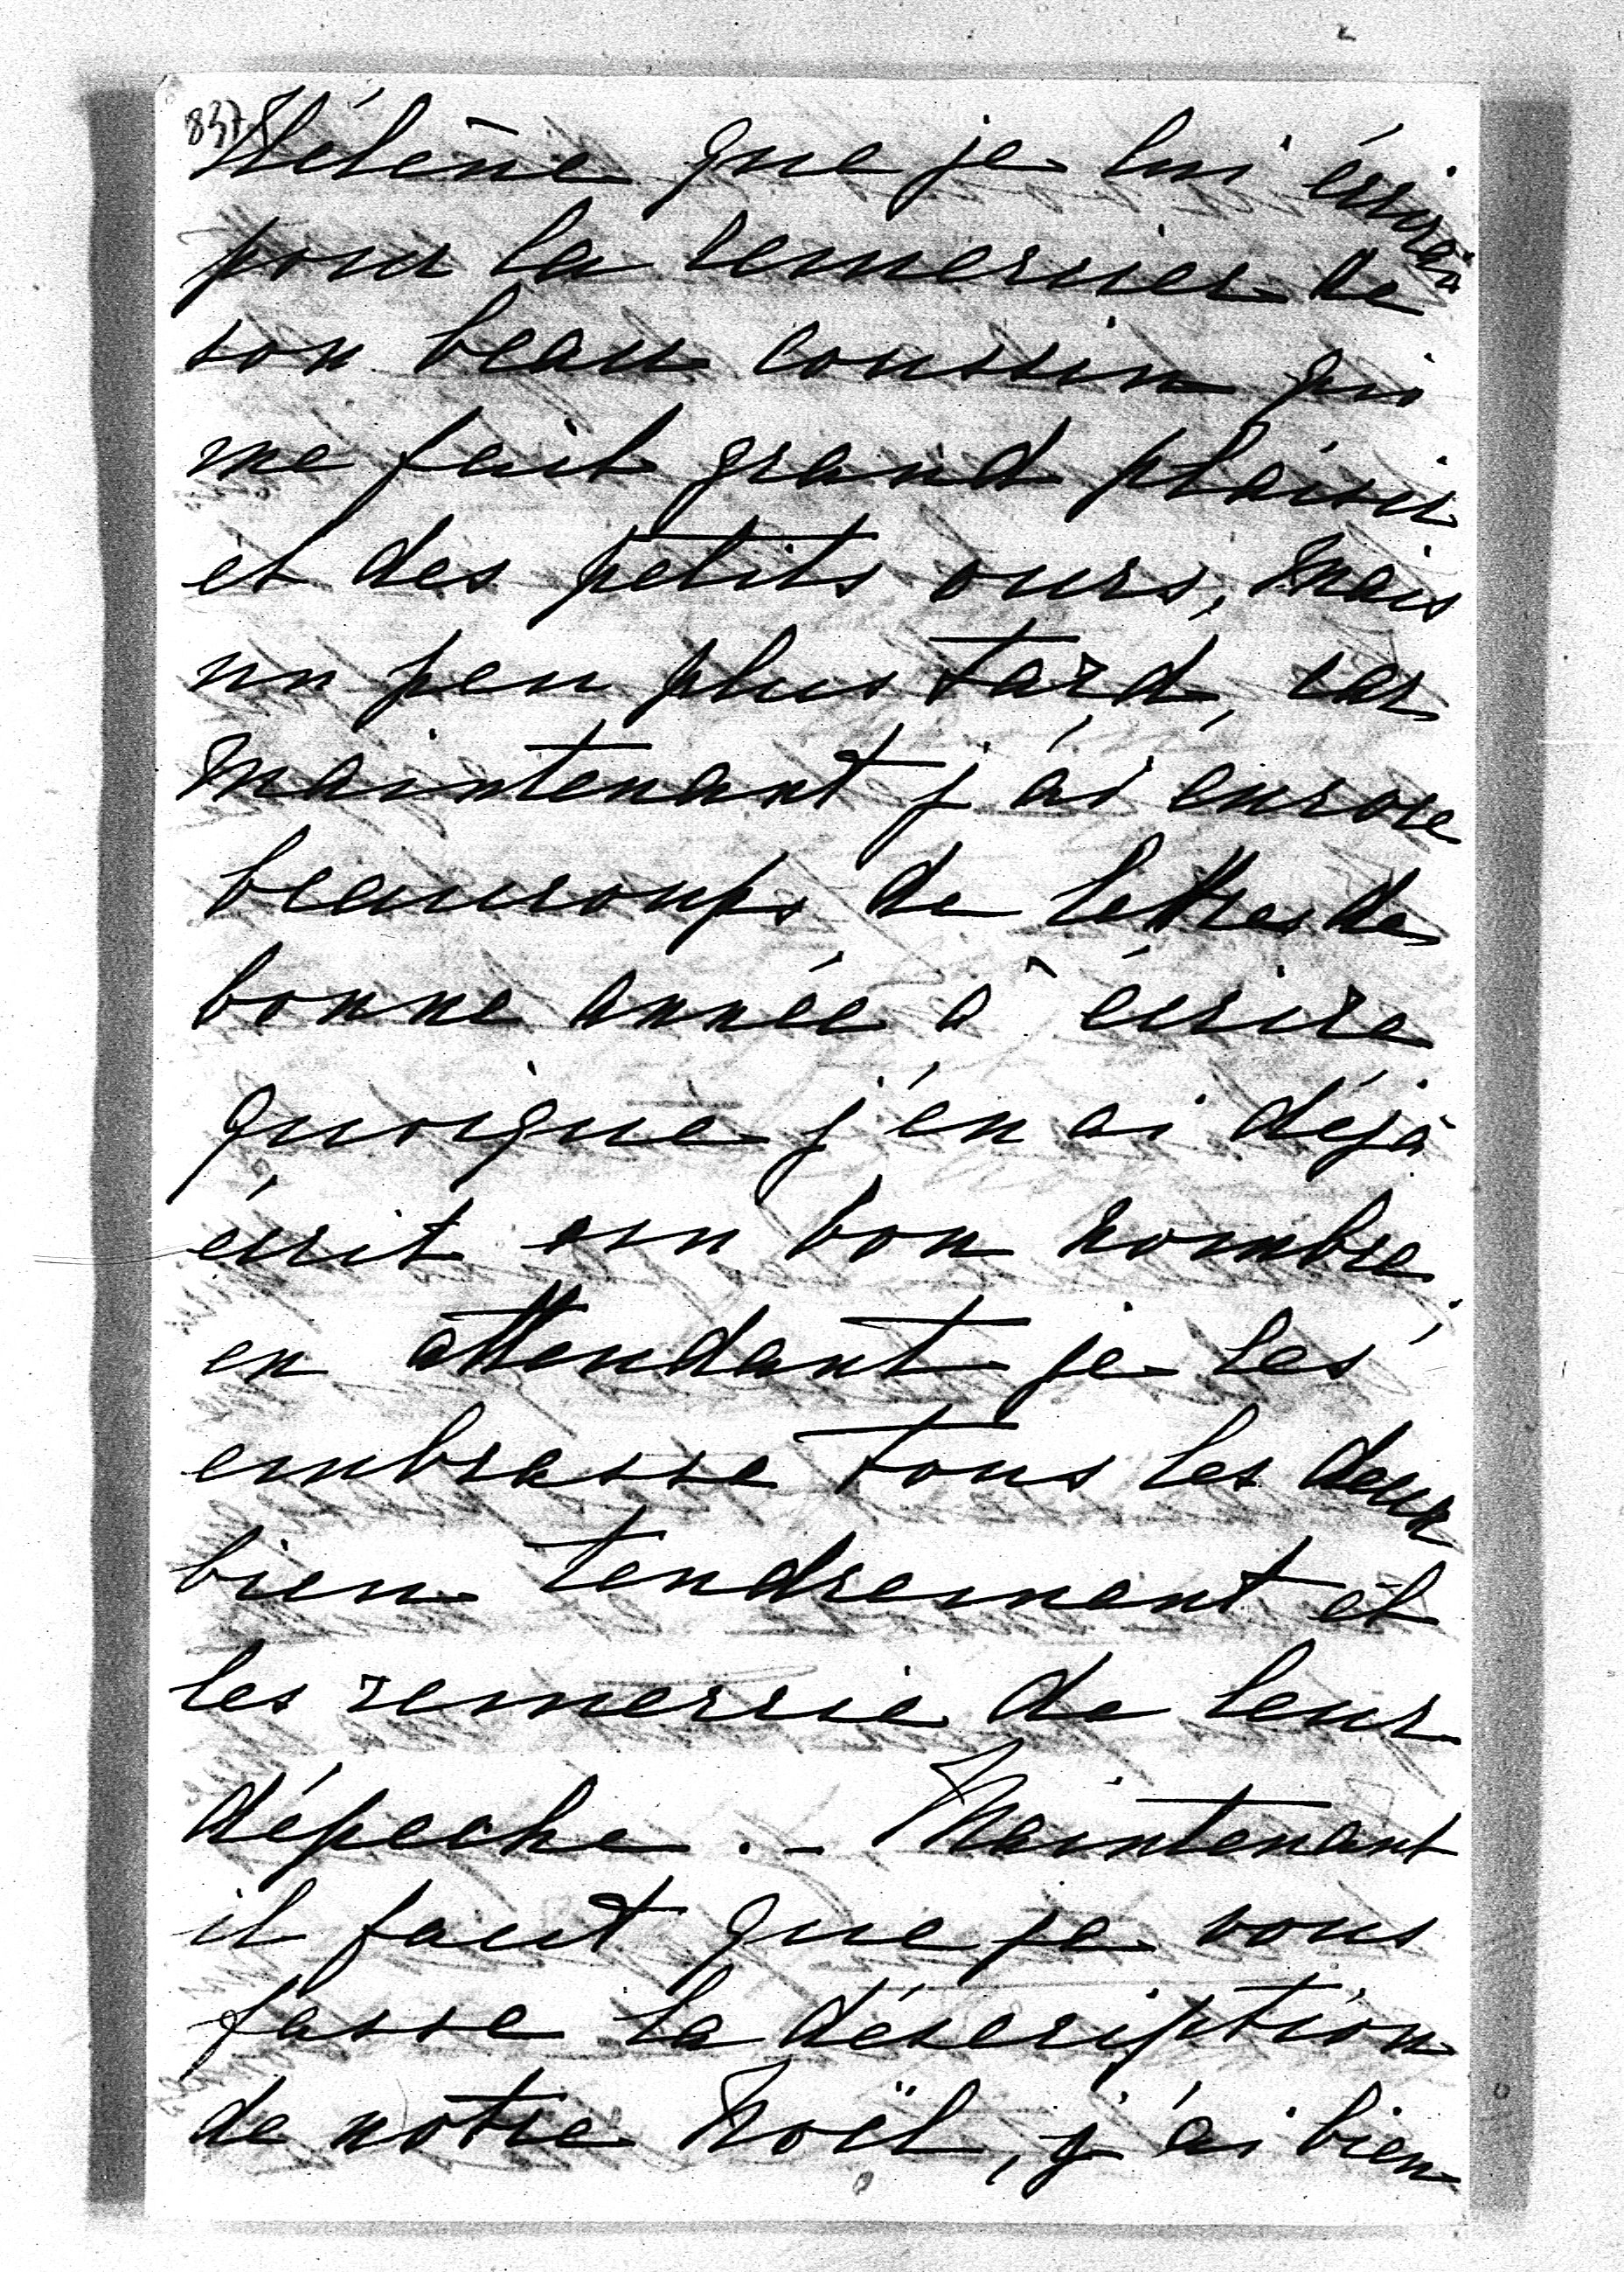 837
Hélène que je lui écrirai
pour la remercier de
son beau coussin qui
me fait grand plaisir
et des petits ours, mais
un peu plus tard, car
maintenant j'ai encore
beaucoups de lettres de
bonne année à écrire
quoique j'en ai déjà
écrit un bon nombre,
en attendant je les
embrasse tous les deux
bien tendrement et
les remercie de leur
dépeche. - Maintenant
il faut que je vous
fasse la déscription
de notre Noël, j'ai bien